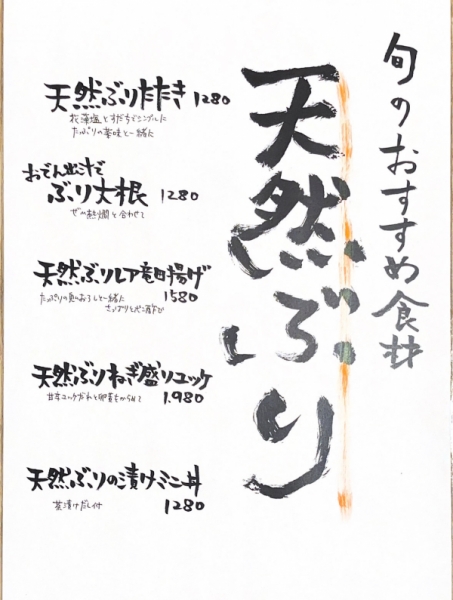 旬のおすすめ食材
天然ぶり
天然ぶりたたき 1280
花藻塩とすだちでシンプルに
たっぷりの薬味と一緒に
おでん出汁で
ぶり大根 1280
ぜひ熱燗と合わせて
天然ぶりレア竜田揚げ
1580
たっぷりの鬼おろしと一緒に
さっぱりとポン酢で
天然ぶりねぎ盛りユッケ
1.980
甘辛コックだれと卵黄をからめて
天然ぶりの漬けミニ丼
1280
茶漬けだし付